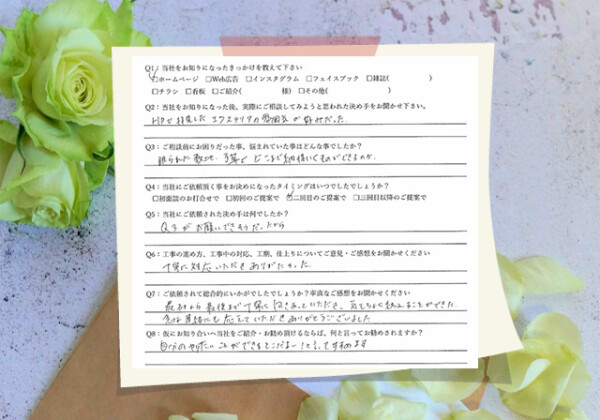 Q1：当社をお知りになったきっかけを教えて下さい
☑ホームページ □Web広告 □インスタグラム □フェイスブック □雑誌( )
□チラシ □看板 □ご紹介( 様) □その他( )
Q2：当社をお知りになった後、実際にご相談してみようと思われた決め手をお聞かせ下さい。
HPで拝見したエクステリアの雰囲気が好みだった。
Q3：ご相談前にお困りだった事、悩まれていた事はどんな事でしたか？
限られた敷地、予算でどこまで納得いくものができるのか。
Q4：当社にご依頼頂く事をお決めになったタイミングはいつでしたでしょうか？
□初面談のお打合せで □初回のご提案で ☑二回目のご提案で □三回目以降のご提案で
Q5：当社にご依頼された決め手は何でしたか？
Q3がお願いできそうだったから
Q6：工事の進め方、工事中の対応、工期、仕上りについてご意見・ご感想をお聞かせください
丁寧に対応いただきありがたかった。
Q7：ご依頼されて総合的にいかがでしたでしょうか？率直なご感想をお聞かせください
最初から最後まで丁寧に向きあっていただき、安心して終えることができた。
急な 応えていただきありがとうございました
Q8：仮にお知り合いへ当社をご紹介・お勧め頂けるならば、何と言ってお勧めされますか？
自分のやりたいことができるところだよー！と言ってすすめます